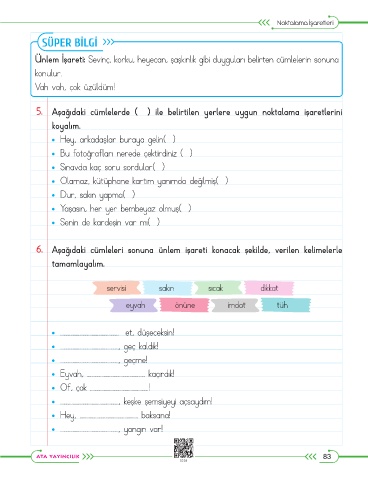 Noktalama İşaretleri
SÜPER BİLGİ
Ünlem İşareti: Sevinç, korku, heyecan, şaşkınlık gibi duyguları belirten cümlelerin sonuna
konulur.
Vah vah, çok üzüldüm!
5. Aşağıdaki cümlelerde ( ) ile belirtilen yerlere uygun noktalama işaretlerini
koyalım.
• Hey, arkadaşlar buraya gelin( )
• Bu fotoğrafları nerede çektirdiniz ( )
• Sınavda kaç soru sordular( )
• Olamaz, kütüphane kartım yanımda değilmiş( )
• Dur, sakın yapma( )
• Yaşasın, her yer bembeyaz olmuş( )
• Senin de kardeşin var mı( )
6. Aşağıdaki cümleleri sonuna ünlem işareti konacak şekilde, verilen kelimelerle
tamamlayalım.
servisi sakın sıcak dikkat
eyvah önüne imdat tüh
• .................... et, düşeceksin!
• ...................., geç kaldık!
• ...................., geçme!
• Eyvah, .................... kaçırdık!
• Of, çok ....................!
• ...................., keşke şemsiyeyi açsaydım!
• Hey, .................... baksana!
• ...................., yangın var!
ATA YAYINCILIK
83